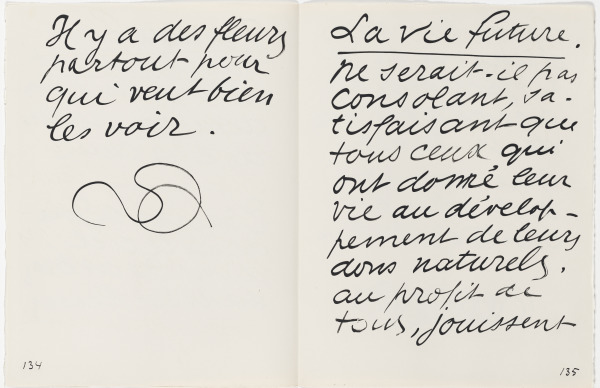 Il y a des fleurs
partout pour
qui veut bien
les voir.
134
La vie future.
ne serait-il pas
consolant, sa-
tisfaisant que
tous ceux qui
ont donné leur
vie au dévelop-
pement de leurs
dons naturels.
au profit de
tous, jouissent
135